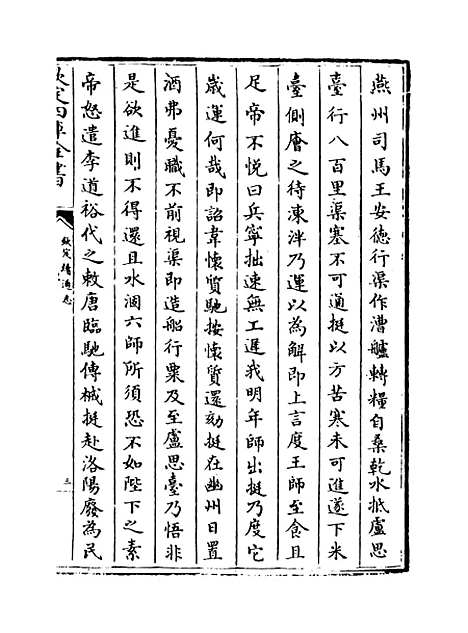 燕州司馬王安德行渠作漕艫轉糧自桑乾水抵盧思
臺行八百里渠塞不可通挺以方苦寒未可進遂下米
臺側廥之待凍泮乃運以為解即上言度王師至食且
足帝不悅曰兵寧拙速無工遲我明年師出挺乃度它
歲運何哉即詔韋懷質馳按懷質還劾挺在幽州日置
酒弗憂職不前視渠即造船行粟及至盧思臺乃悟非
是欲進則不得還且水涸六師所須恐不如陛下之素
帝怒遣李道裕代之敕唐臨馳傳械挺赴洛陽廢為民
欽定四庫全書
欽定續通志
三